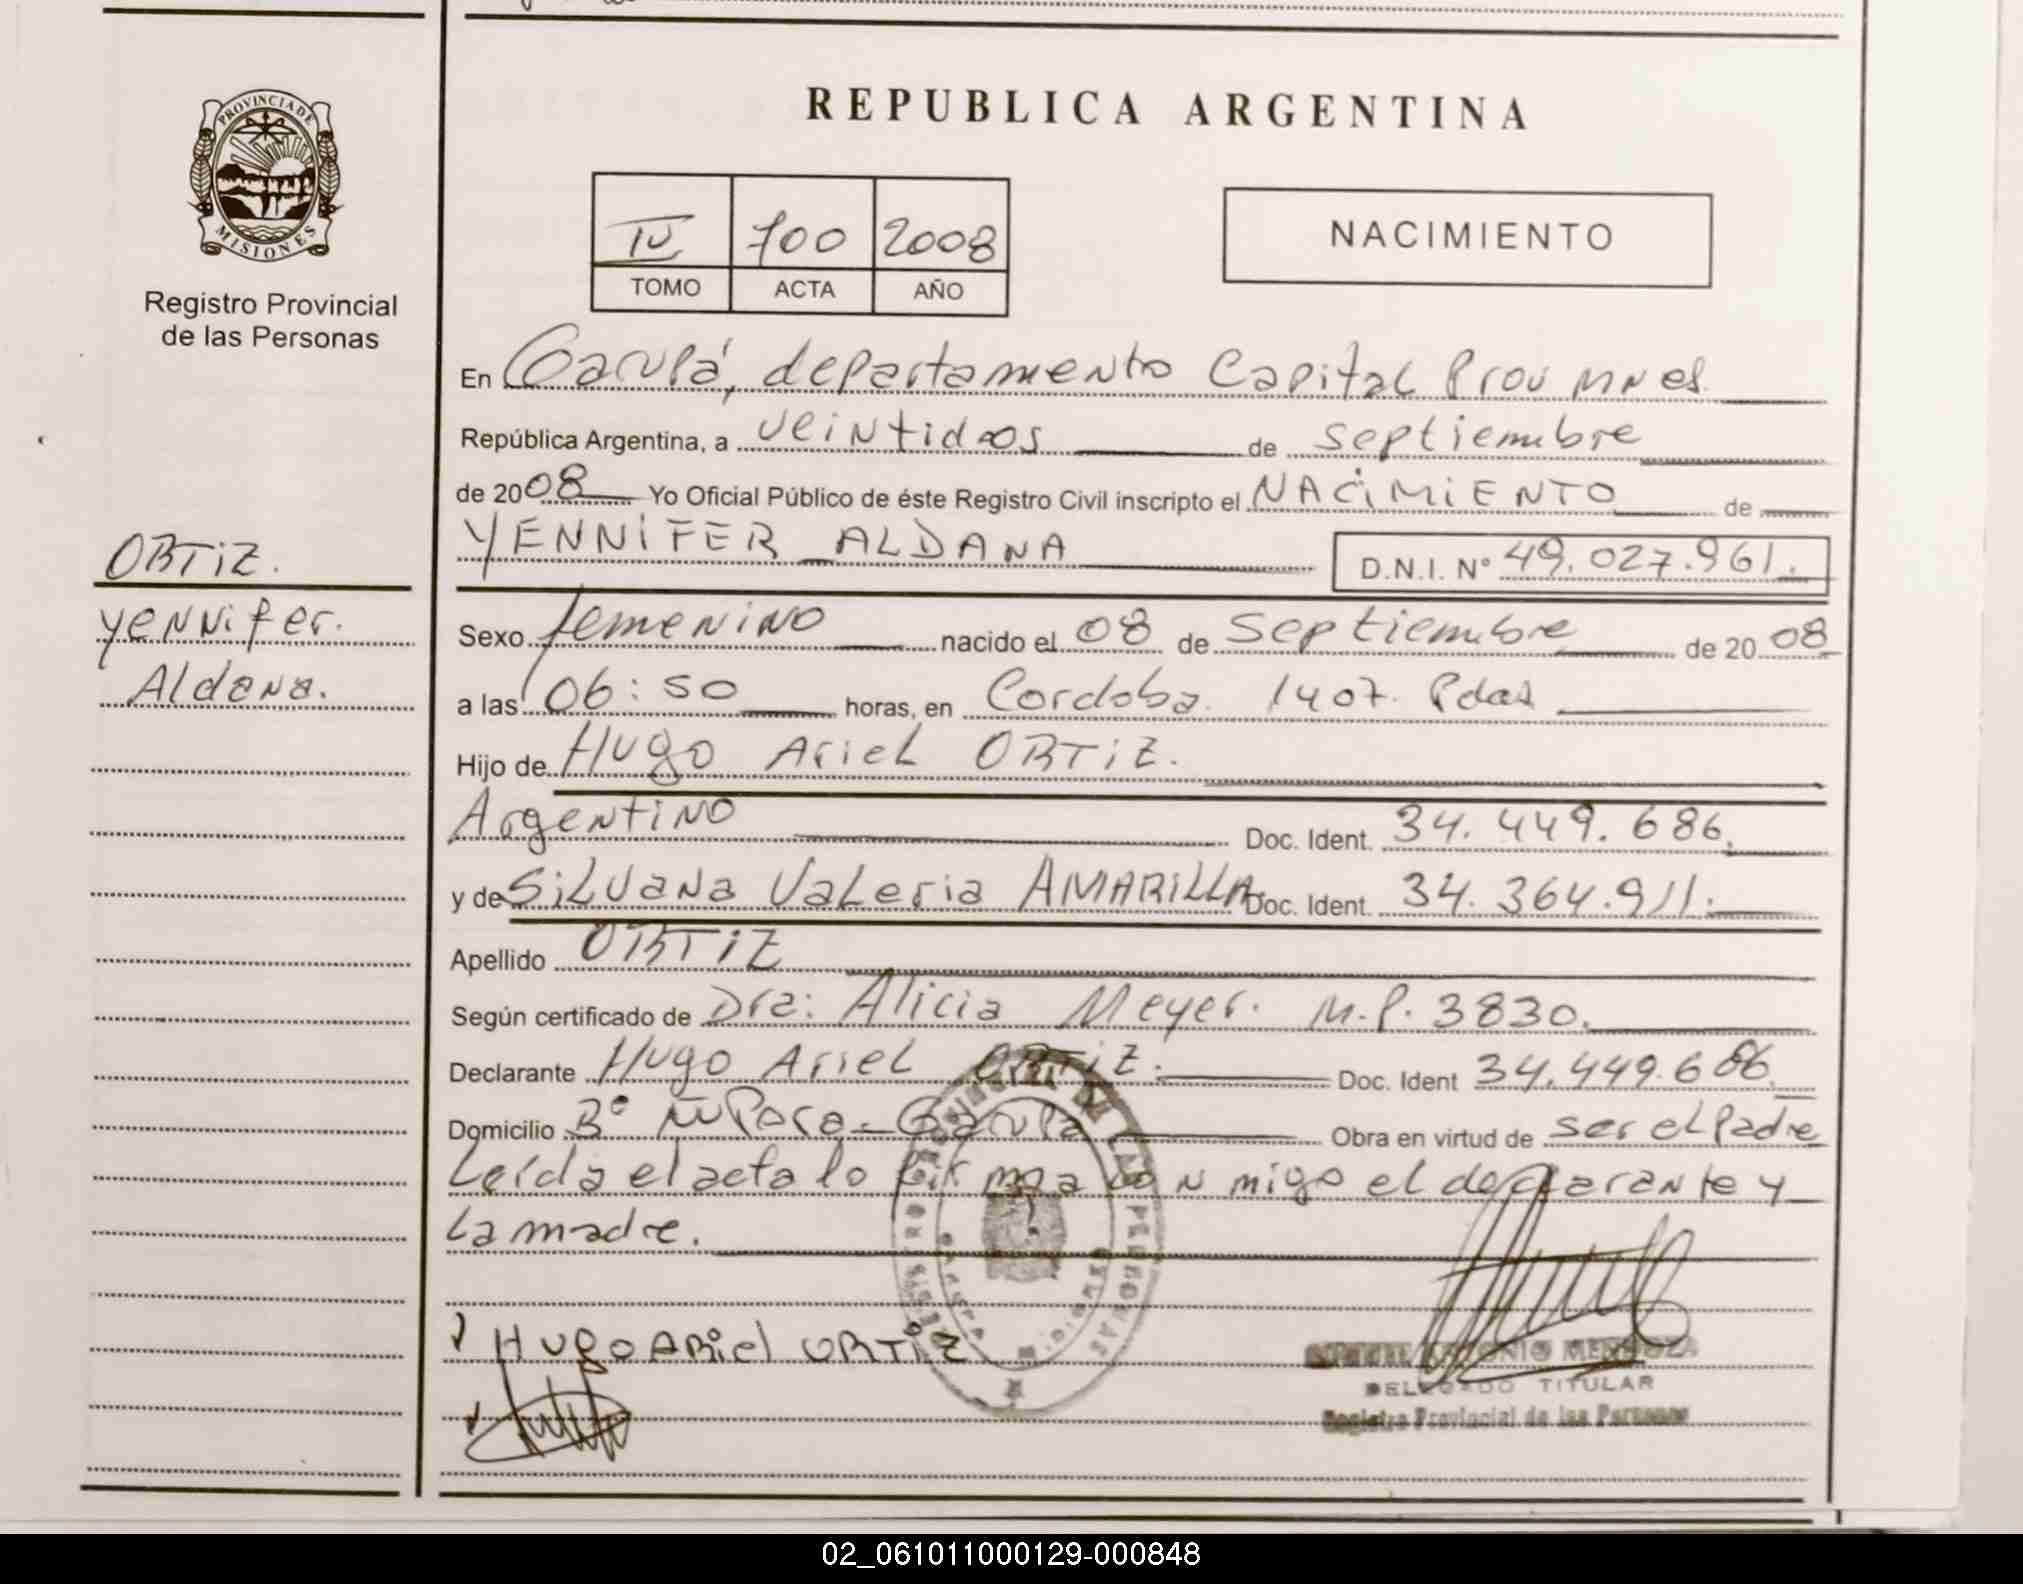 PROVINCIA DE
MISIONES
Registro Provincial
de las Personas
ORTIZ.
Yennifer.
Aldana.
REPUBLICA ARGENTINA
IV 700 2008
TOMO ACTA AÑO
NACIMIENTO
En Garupá, departamento Capital Prov Mnes.
República Argentina, a veintidos de septiembre
de 2008 Yo Oficial Público de éste Registro Civil inscripto el NACIMIENTO de
YENNIFER ALDANA D.N.I. N° 49.027.961.
Sexo femenino nacido el 08 de Septiembre de 2008
a las 06:50 horas, en Cordoba. 1407. Pdas
Hijo de Hugo Ariel ORTIZ.
Argentino Doc. Ident. 34.449.686.
y de Silvana Valeria AMARILLA Doc. Ident. 34.364.911.
Apellido ORTIZ
Según certificado de Dra: Alicia Meyer. M.P. 3830.
Declarante Hugo Ariel ORTIZ. Doc. Ident 34.449.686.
Domicilio B° Ñu Pora - Garupá Obra en virtud de ser el Padre
Leída el acta lo firma con migo el declarante y
la madre.
Hugo ARiel ORTIZ
ANTONIO MENDOZA
DELEGADO TITULAR
Registro Provincial de las Personas
02_061011000129-000848